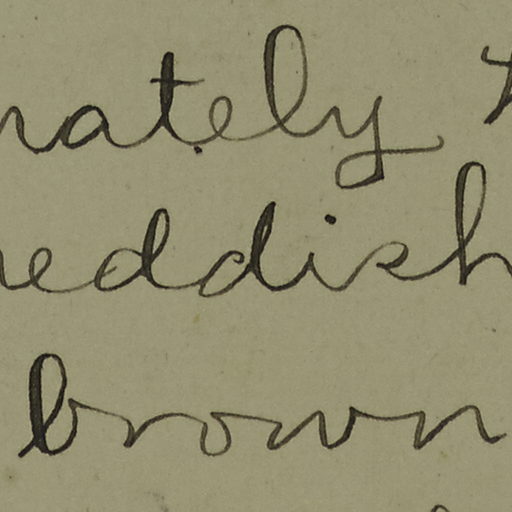 nately
reddish
brown